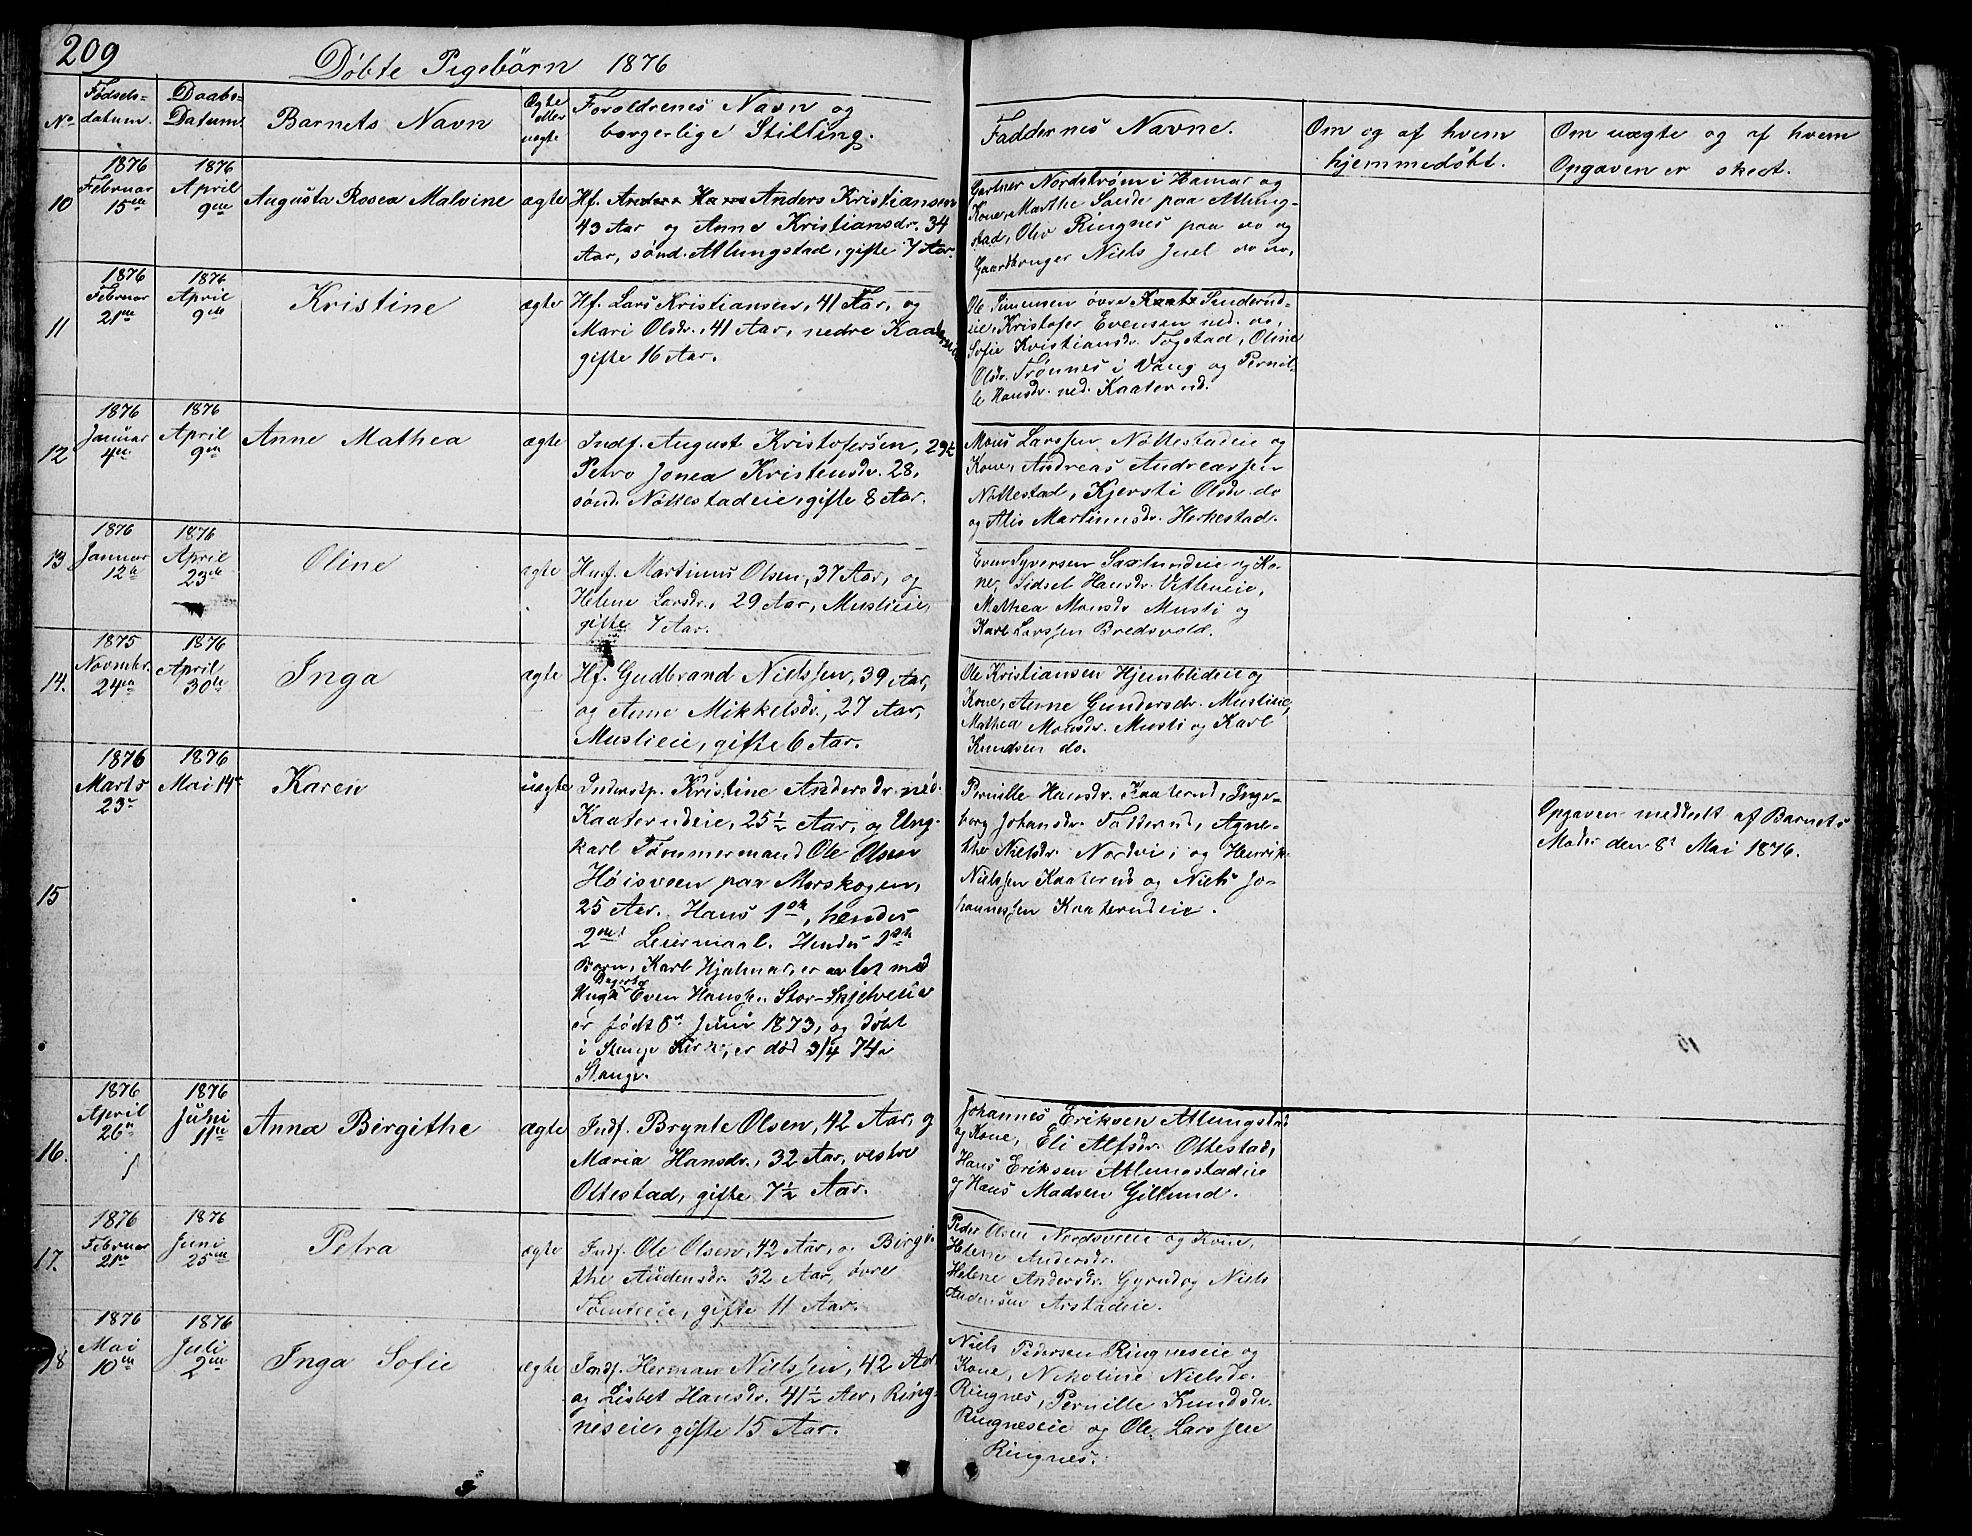 209
Døbte Pigebørn 1876
No
Fødsels-
datum.
Daabs-
Datum.
Barnets Navn
Ægte
eller
uægte
Forældrenes Navn og
borgerlige Stilling.
Faddernes Navne.
Om og af hvem
hjemmedøbt.
Om uægte og af hvem
Opgaven er skeet.
10
1876
Februar
15de
1876
April
9de
Augusta Rosea Malvine
ægte
Hf. Anders Hans Anders Kristiansen
43 Aar og Anne Kristiansdr. 34
Aar, sønd. Atlungstad, gifte 7 Aar.
Gartner Nordstrøm i Hamar og
Kone, Marthe paa Atlung-
stad, Olev Ringnes paa do og
Gaardbruger Niels Juel do do,
11
1876
Februar
21de
1876
April
9de
Kristine
ægte
Hf. Lars Kristiansen, 41 Aar, og
Mari Olsdr., 41 Aar, nedre Kaaterud
gifte 16 Aar.
Ole Simensen øvre Sinderud-
eie, Kristofer Evensen ned. do,
Sofie Kristiansdr. Togstad, Oline
Olsdr. Frønnes i Vang og Pernil-
le Hansdr. ned. Kaaterud.
12
1876
Januar
4de
1876
April
9de
Anne Mathea
ægte
Indf. August Kristofersen, 29½
Petro Jonea Kristensdr. 28,
sønd. Nøttestadeie, gifte 8 Aar.
Mons Larssen Nøttestadeie og
Kone, Andreas Andreassen
Nøttestad, Kjersti Olsdr. do
og Alis Martinusdr. Herkestad.
13
1876
Januar
12te
1876
April
23de
Oline
ægte
Husf. Martinus Olsen, 37 Aar, og
Helene Larsdr., 29 Aar, Muslieie,
gifte 7 Aar.
Even Syversen Saxlundeie og Ko-
ne, Sidsel Hansdr. Vitleneie,
Mathea Monsdr. Musti og
Karl Larssen Bredvold.
14.
1875
Novmbr.
24de
1876
April
30te
Inga
ægte
Hf. Gudbrand Nielssen, 39 Aar,
og Anne Mikkelsdr., 27 Aar,
Muslieie, gifte 6 Aar.
Ole Kristiansen Hjemblideie og
Kone, Anne Gundersdr. Muslieie,
Mathea Monsdr. Musti og Karl
Knudsen do.
15
1876
Marts
23de
1876
Mai 14de
Karen
uægte
Inderstp. Kristine Andersdr. ned.
Kaaterudeie, 25½ Aar, og Ung-
karl Tømmermand Ole Olsen
Høisveen paa Morskogen,
25 Aar. Hans 1ste, hendes
2det Leiermaal. Hendes 1ste
Barn, Karl Hjalmar, er avlet med
Ungk. Even Hanssen Stor-Skjelveeie
er født 8de Juni 1873, og døbt
i Stange Kirke, er død 3/4 74 i
Stange.
Pernille Hansdr. Kaaterud, Inge-
borg Johansdr. Fatterud, Agne-
the Nielsdr. Nordvi i og Henrik
Nielssen Kaaterud og Niels Jo-
hannessen Kaaterudeie.
Opgaven meddeelt af Barnets
Moder den 8de Mai 1876.
16.
1876
April
26de
1876
Juni
11te
Anna Birgithe
ægte
Indf. Brynte Olsen, 42 Aar, og
Maria Hansdr., 32 Aar, vestre
Ottestad, gifte 7½ Aar.
Johannes Eriksen Atlungstad
og Kone, Eli Alfsdr. Ottestad,
Hans Eriksen Atlungstadeie
og Hans Madsen Gillund.
17.
1876
Februar
21de
1876
Juni
25de
Petra
ægte
Indf. Ole Olsen, 42 Aar, og Birgi-
the Audensdr. 32 Aar, øvre
Tømteeie, gifte 11 Aar.
Peder Olsen Nordsveeie og Kone,
Helene Andersdr.
Helene Andersdr. Gyrud og Niels
Audensen Arstadeie.
18
1876
Mai
10de
1876
Juli
2den
Inga Sofie
ægte
Indf. Herman Nielssen, 42 Aar
og Lisbet Hansdr. 41½ Aar, Ring-
neseie, gifte 15 Aar.
Niels Pedersen Ringneseie og
Kone, Nikoline Nielsdr.
Ringnes, Pernille Knudsdr.
Ringneseie og Ole Larssen
Ringnes.